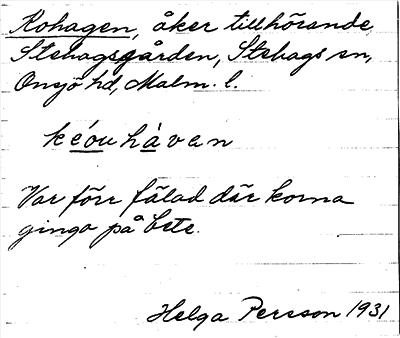 Kohagen, åker tillhörande,
Stehagsgården, Stehags sn,
Onsjö hd, Malm. l.
kéouhàvan
Var förr fälad där korna
gingo på bete.
Helga Persson 1931